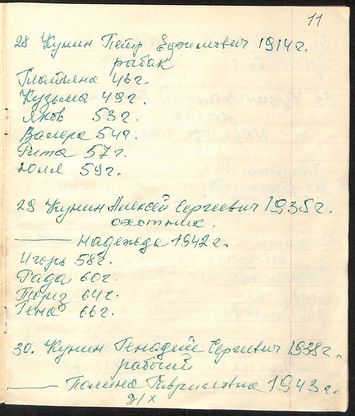 11
28 Кунин Пётр Ефимович 1914г.
рыбак
Татьяна 46г.
Кузьма 49г.
Яков 53г.
Валера 54г.
Рита 57г.
Юлия 59г.
29 Кунин Алексей Сергеевич 1935г.
охотник.
Надежда 1942г.
Игорь 58г.
Рада 60г.
64г.
Гена 66г.
30. Кунин Генадий Сергеевич 1938г.
рабочий
Полина Гавриловна 1943г.
д/х